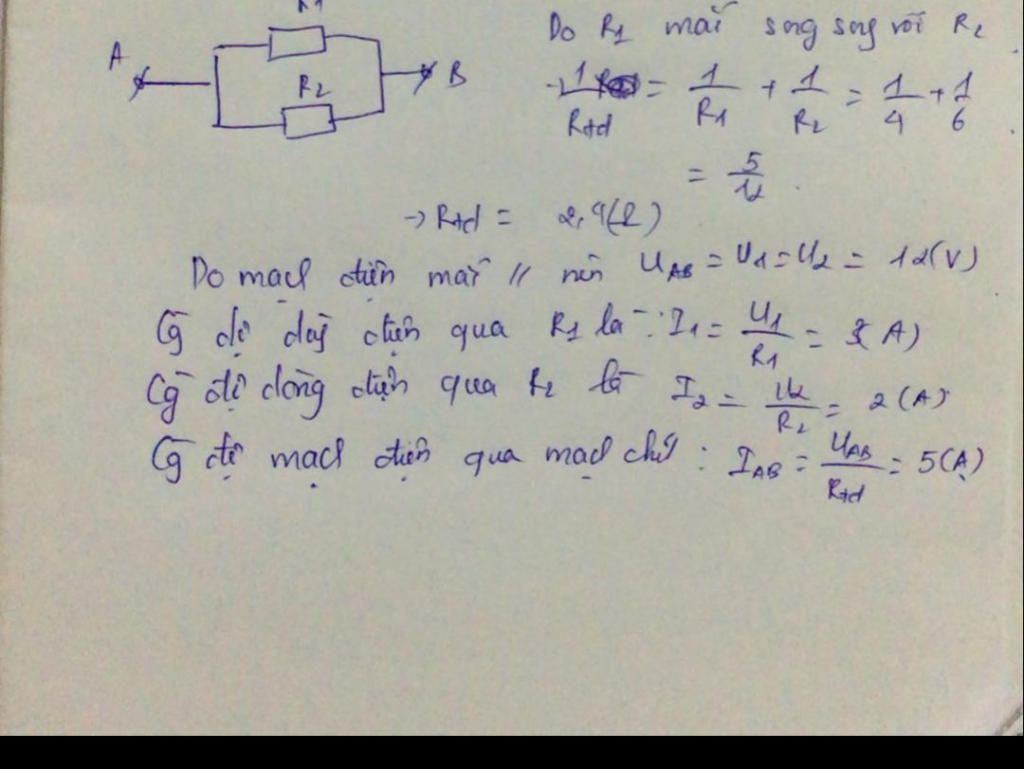 R1
A
R2
B
Do R1 mắc song song với R2
→ 1/Rtđ = 1/R1 + 1/R2 = 1/4 + 1/6
= 5/12
→ Rtđ = 2,4(Ω)
Do mạch điện mắc // nên UAB = U1 = U2 = 12(V)
Cg độ dòng điện qua R1 là : I1 = U1/R1 = 3(A)
Cg độ dòng điện qua R2 là I2 = U2/R2 = 2(A)
Cg độ mạch điện qua mạch chính : IAB = UAB/Rtđ = 5(A)